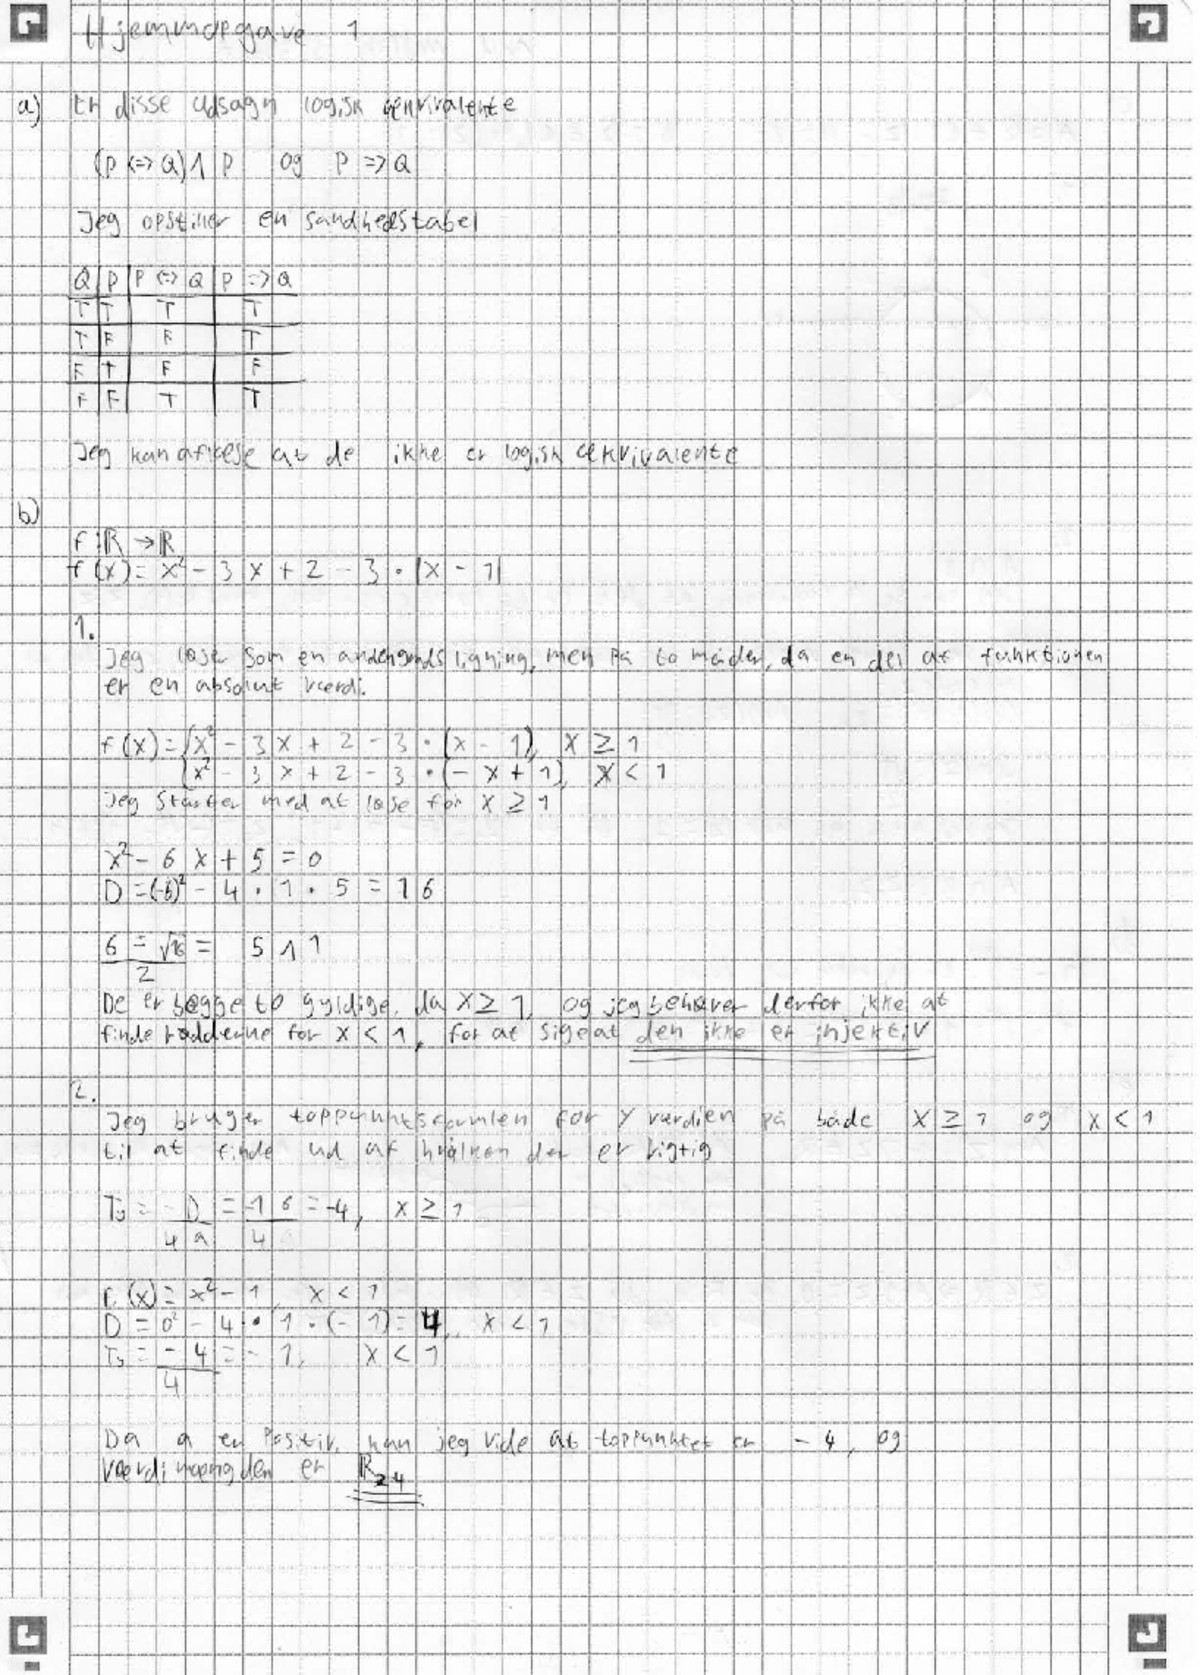 Hjemmeopgave 1
a) Er disse udsagn logisk ækvivalente
(P <=> Q) ∧ P og P => Q
Jeg opstiller en sandhedstabel
Q P P <=> Q P => Q
T T T T
T F F T
F T F F
F F T T
Jeg kan aflæse at de ikke er logisk ækvivalente
b)
f: ℝ → ℝ
f(x) = x² - 3x + 2 - 3 · |x - 1|
1.
Jeg løser som en andengradsligning, men på to måder, da en del af funktionen
er en absolut værdi.
f(x) = { x² - 3x + 2 - 3 · (x - 1), x ≥ 1
x² - 3x + 2 - 3 · (-x + 1), x < 1
Jeg starter med at løse for x ≥ 1
x² - 6x + 5 = 0
D = (-6)² - 4 · 1 · 5 = 16
(6 ± √16)/2 = 5 ∧ 1
De er begge to gyldige, da x ≥ 1, og jeg behøver derfor ikke at
finde rødderne for x < 1, for at sige at den ikke er injektiv
2.
Jeg bruger toppunktsformlen for y værdien på både x ≥ 1 og x < 1
til at finde ud af hvilken der er rigtig
Ty = -D/4a = -16/4 = -4, x ≥ 1
f(x) = x² - 1, x < 1
D = 0² - 4 · 1 · (-1) = 4, x < 1
Ty = -4/4 = -1, x < 1
Da a er positiv, kan jeg vide at toppunktet er -4, og
Værdimængden er ℝ≥-4